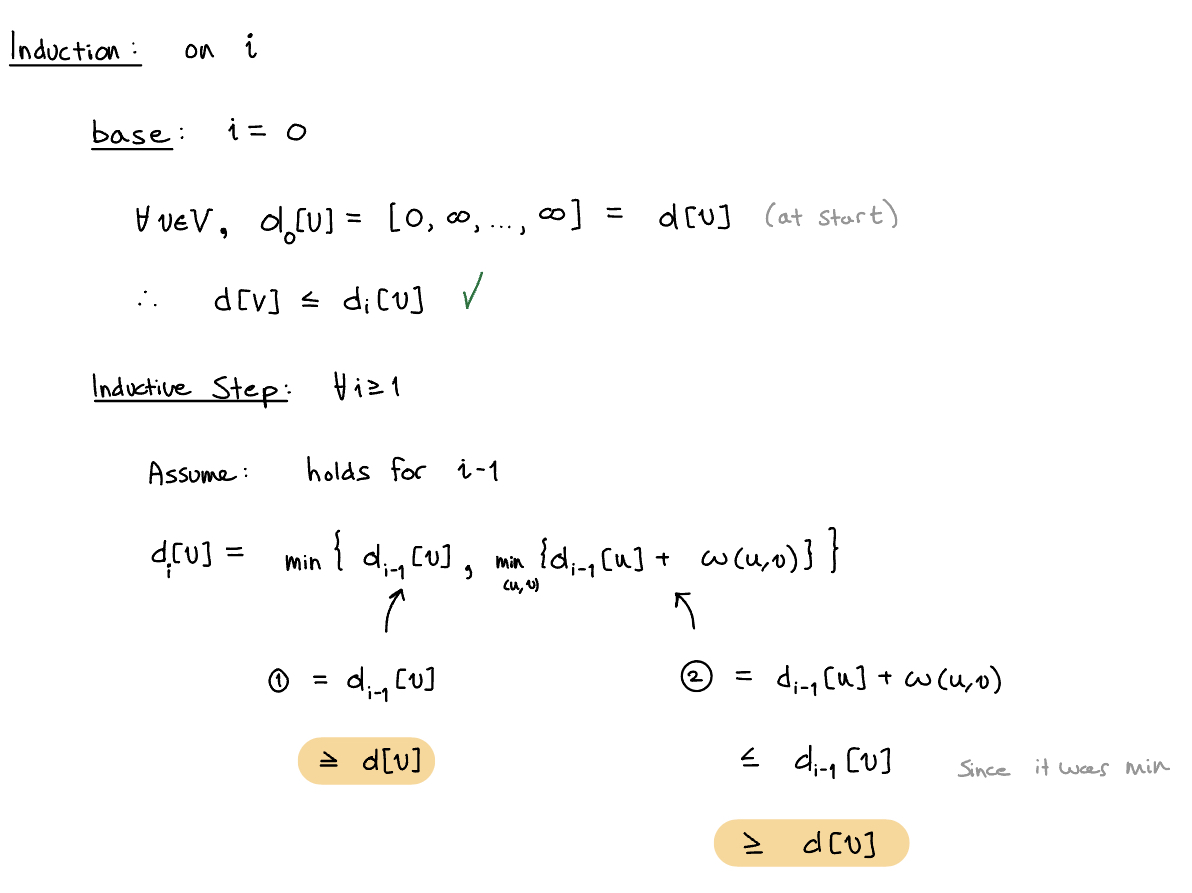 Induction: on i
base: i = 0
∀ v∈V, d₀[v] = [0, ∞, ..., ∞] = d[v] (at start)
∴ d[v] ≤ dᵢ[v] ✓
Inductive Step: ∀ i ≥ 1
Assume: holds for i-1
dᵢ[v] = min { dᵢ₋₁[v], min {dᵢ₋₁[u] + ω(u,v)} }
(u,v)
① = dᵢ₋₁[v]
② = dᵢ₋₁[u] + ω(u,v)
≥ d[v]
≤ dᵢ₋₁[v] Since it was min
≥ d[v]